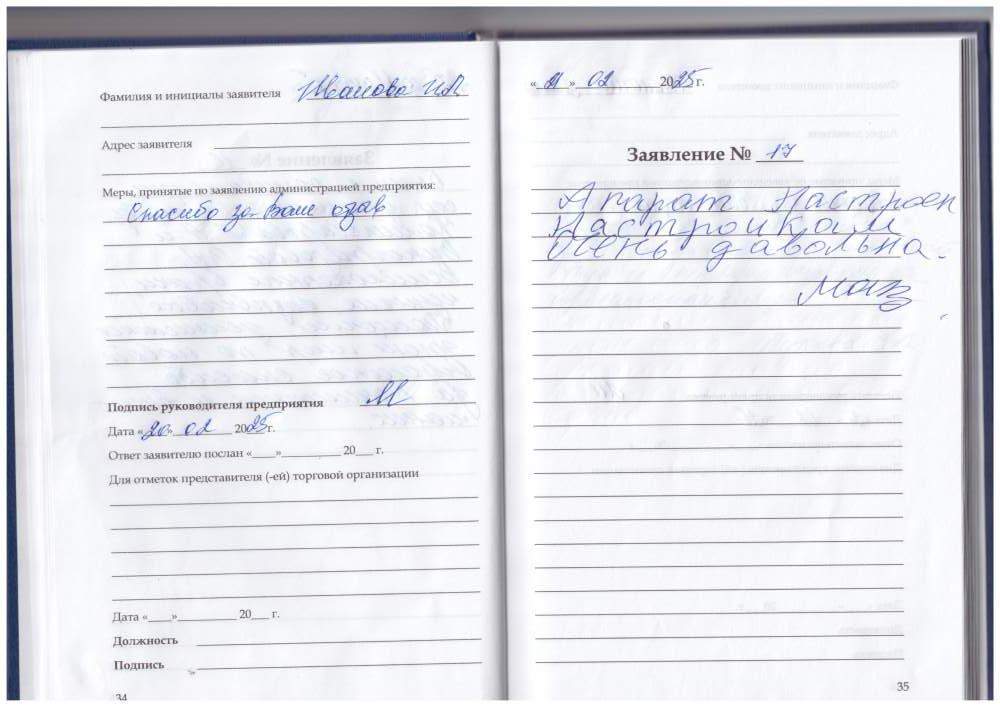 Фамилия и инициалы заявителя Иванова И.А.
Адрес заявителя
Меры, принятые по заявлению администрацией предприятия:
Спасибо за Ваш отзыв
Подпись руководителя предприятия
Дата «20» 02 2025г.
Ответ заявителю послан «___»__________ 20___ г.
Для отметок представителя (-ей) торговой организации
Дата «____»__________ 20___ г.
Должность
Подпись
34
«21» 02 2025 г.
Заявление № 17
Апарат Настроен
Настройкам
Очень давольна.
35